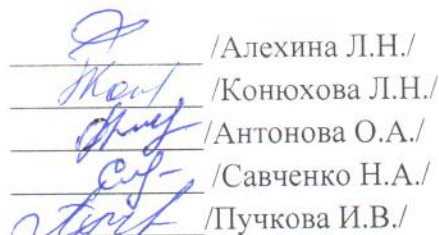 /Алехина Л.Н./
/Конюхова Л.Н./
/Антонова О.А./
/Савченко Н.А./
/Пучкова И.В./